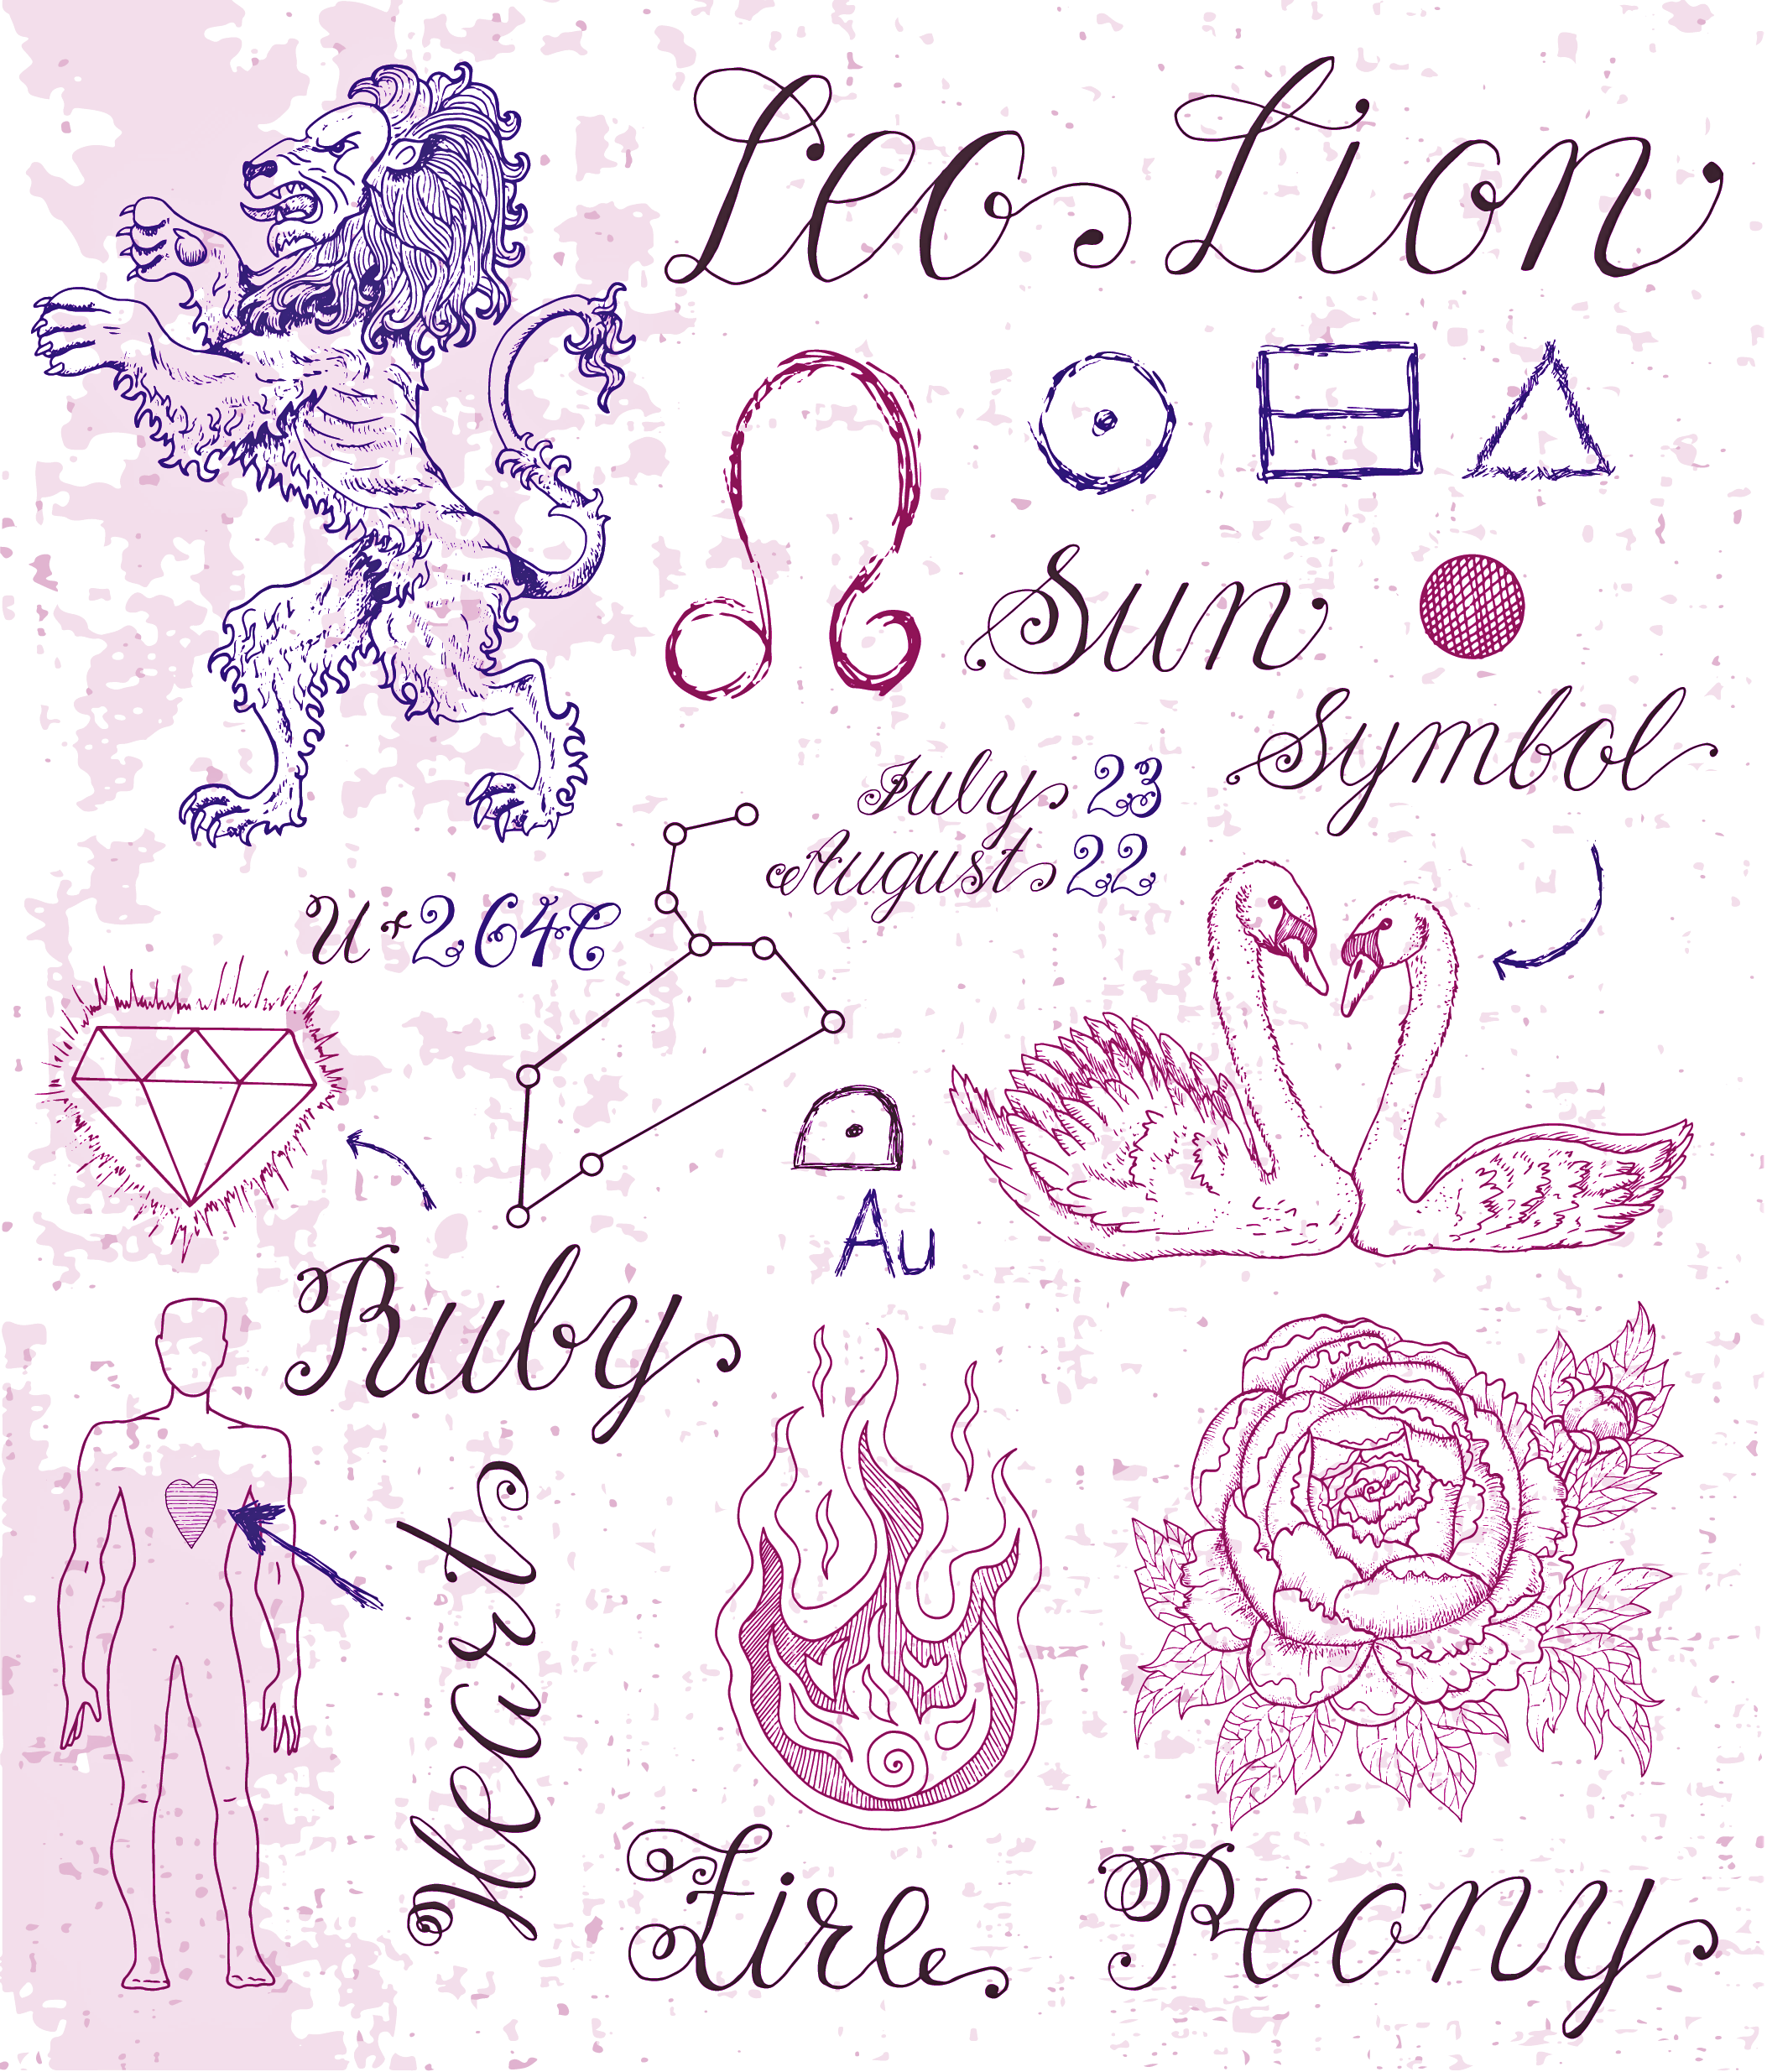 Leo Lion
Sun
Symbol
July 23
August 22
Au
Ruby
Heart
Fire
Peony